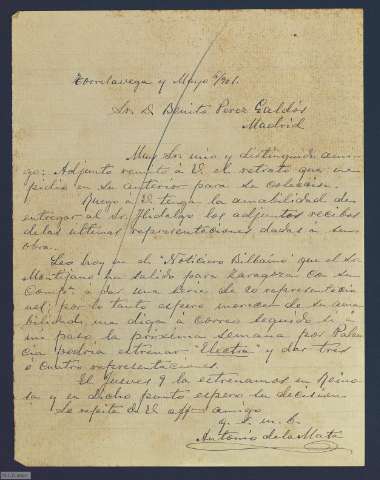 Torrelavega y Mayo 6/901.
Sr. D. Benito Perez Galdós
Madrid
Muy Sr. mio y distinguido ami-
go: Adjunto remito á V. el retrato que me
pedia en su anterior para su coleccion.
Ruego á V. tenga la amabilidad de
entregar al Sr. Hidalgo los adjuntos recibos
de las ultimas representaciones dadas á sus
obra.
Leo hoy en el "Noticiero Bilbaino" que el Sr.
Montijano ha salido para Zaragoza con su
Compª á dar una serie de 20 representacio
nes; por lo tanto espero merecer de su ama
bilidad, me diga á correo seguido si á
mi paso la proxima semana por Palen
cia podria estrenar Electra y dar tres
ó cuatro representaciones.
El Jueves 9 la estrenamos en Reino
sa y en dicho punto espero su decision
Se repite de V. affmo amigo
q. b. s. m.
Antonio de la Mata